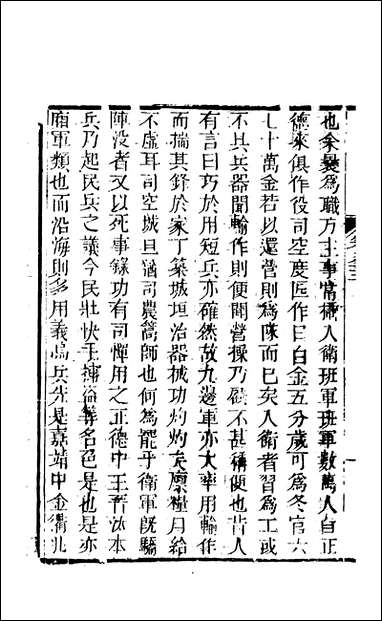 也余曩為職方主事嘗稽入衛班軍班軍數萬人自正
德來俱作役司空庋匠作日白金五分歲可為冬官六
七十萬金若以還營則為隊而已矣人衛者習為工或
不具兵器閒輸作則便閒營操乃顧不甚稱便也昔人
有言曰巧於用短兵亦確然故九邊軍亦大率用輸作
而揣其鋒於家丁築城垣治器械功灼灼矣廩糧月給
不虛耳司空城旦酒司農篙師也何為龍乎衛軍旣驕
陣没者又以死事錄功有司憚用之正德中王晉溪本
兵乃起民兵之議今民壯快手捕盜等名色是也是亦
廂軍類也而沿海則多用義烏兵先是嘉靖中金衢兆